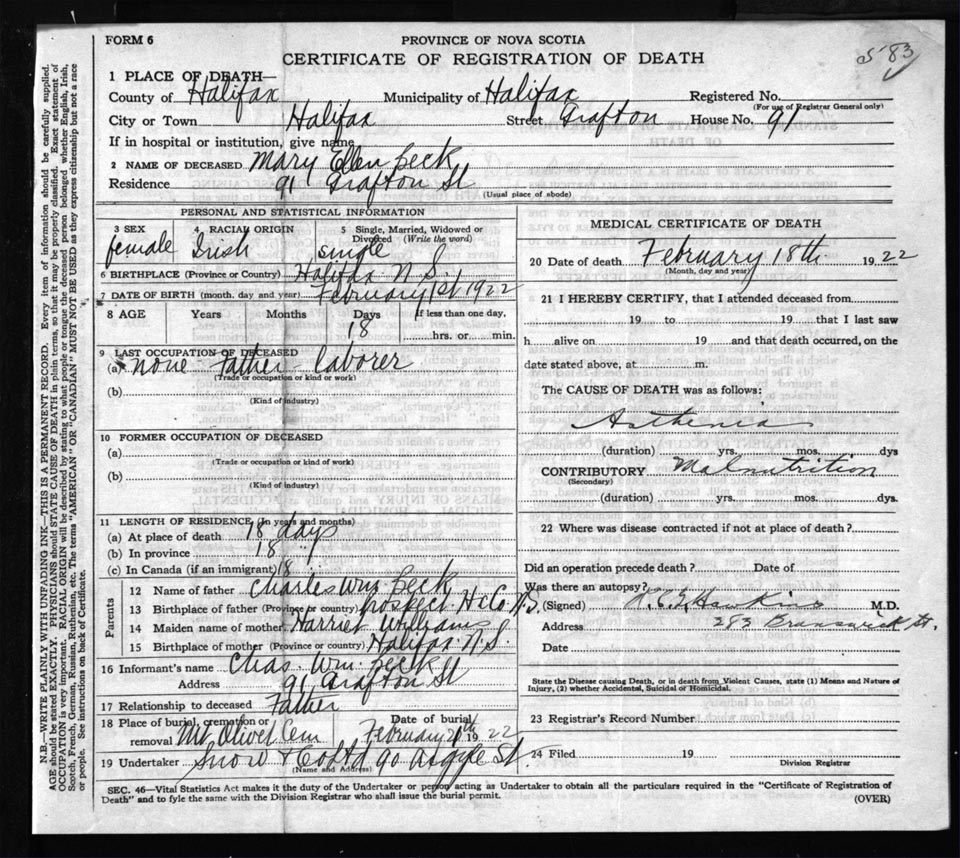 FORM 6
PROVINCE OF NOVA SCOTIA
583
CERTIFICATE OF REGISTRATION OF DEATH
1 PLACE OF DEATH—
County of Halifax Municipality of Halifax Registered No.
(For use of Registrar General only)
City or Town Halifax Street Grafton House No. 91
If in hospital or institution, give name
2 NAME OF DECEASED Mary Ellen Peck
Residence 91 Grafton St
(Usual place of abode)
PERSONAL AND STATISTICAL INFORMATION
3 SEX 4 RACIAL ORIGIN 5 Single, Married, Widowed or Divorced (Write the word)
female Irish single
6 BIRTHPLACE (Province or Country) Halifax N.S.
7 DATE OF BIRTH (month, day and year) February 1st 1922
8 AGE Years Months Days If less than one day,
18 hrs. or min.
9 LAST OCCUPATION OF DECEASED
(a) none Father laborer
(Trade or occupation or kind or work)
(b)
(Kind of industry)
10 FORMER OCCUPATION OF DECEASED
(a)
(Trade or occupation or kind or work)
(b)
(Kind of industry)
11 LENGTH OF RESIDENCE (In years and months)
(a) At place of death 18 days
(b) In province 18 "
(c) In Canada (if an immigrant) 18
Parents
12 Name of father Charles Wm. Peck
13 Birthplace of father (Province or country) Prospect Hx Co N.S.
14 Maiden name of mother Harriet Williams
15 Birthplace of mother (Province or country) Halifax N.S.
16 Informant's name Chas. Wm. Peck
Address 91 Grafton St
17 Relationship to deceased Father
18 Place of burial, cremation or removal Mt. Olivet Cem Date of burial February 20th 1922
19 Undertaker Snow & Co Ltd 90 Argyle St.
(Name and Address)
MEDICAL CERTIFICATE OF DEATH
20 Date of death February 18th 1922
(Month, day and year)
21 I HEREBY CERTIFY, that I attended deceased from
19 to 19 that I last saw
h alive on 19 and that death occurred, on the
date stated above, at m.
The CAUSE OF DEATH was as follows:
Asthenia
(duration) yrs. mos. dys
CONTRIBUTORY Malnutrition
(Secondary)
(duration) yrs. mos. dys.
22 Where was disease contracted if not at place of death?
Did an operation precede death? Date of
Was there an autopsy?
(Signed) Hawkins M.D.
Address 283 Brunswick St.
Date
State the Disease causing Death, or in death from Violent Causes, state (1) Means and Nature of
Injury, (2) whether Accidental, Suicidal or Homicidal.
23 Registrar's Record Number
24 Filed 19
Division Registrar
SEC. 46—Vital Statistics Act makes it the duty of the Undertaker or person acting as Undertaker to obtain all the particulars required in the "Certificate of Registration of
Death" and to fyle the same with the Division Registrar who shall issue the burial permit.
(OVER)
N.B.—WRITE PLAINLY WITH UNFADING INK—THIS IS A PERMANENT RECORD. Every item of information should be carefully supplied.
AGE should be stated EXACTLY. PHYSICIANS should STATE CAUSE OF DEATH in plain terms, so that it may be properly classified. Exact statement of
OCCUPATION is very important. RACIAL ORIGIN will be described by stating to what people or tongue the deceased person belonged, whether English, Irish,
Scotch, French, German, Russian, Ruthenian, etc. The terms "AMERICAN" OR "CANADIAN" MUST NOT BE USED as they express citizenship but not a race
or people. See instructions on back of Certificate.